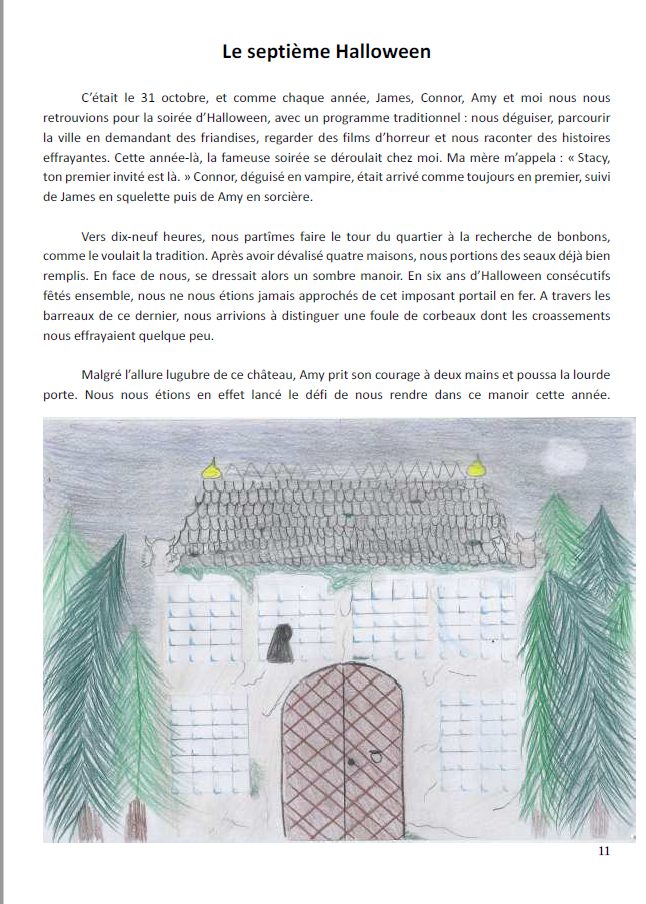 Le septième Halloween
C’était le 31 octobre, et comme chaque année, James, Connor, Amy et moi nous nous
retrouvions pour la soirée d’Halloween, avec un programme traditionnel : nous déguiser, parcourir
la ville en demandant des friandises, regarder des films d’horreur et nous raconter des histoires
effrayantes. Cette année-là, la fameuse soirée se déroulait chez moi. Ma mère m’appela : « Stacy,
ton premier invité est là. » Connor, déguisé en vampire, était arrivé comme toujours en premier, suivi
de James en squelette puis de Amy en sorcière.
Vers dix-neuf heures, nous partîmes faire le tour du quartier à la recherche de bonbons,
comme le voulait la tradition. Après avoir dévalisé quatre maisons, nous portions des seaux déjà bien
remplis. En face de nous, se dressait alors un sombre manoir. En six ans d’Halloween consécutifs
fêtés ensemble, nous ne nous étions jamais approchés de cet imposant portail en fer. A travers les
barreaux de ce dernier, nous arrivions à distinguer une foule de corbeaux dont les croassements
nous effrayaient quelque peu.
Malgré l’allure lugubre de ce château, Amy prit son courage à deux mains et poussa la lourde
porte. Nous nous étions en effet lancé le défi de nous rendre dans ce manoir cette année.
11